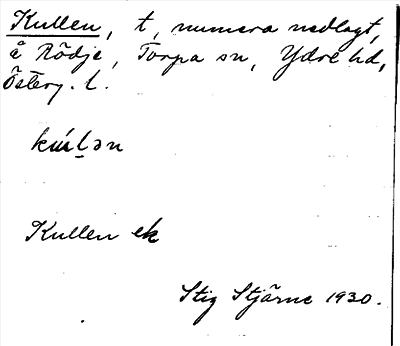 Kullen, t, numera nedlagt,
å Rödje, Torpa sn, Ydre hd,
Österg. l.
kúḷən
Kullen ek
Stig Stjärne 1930.